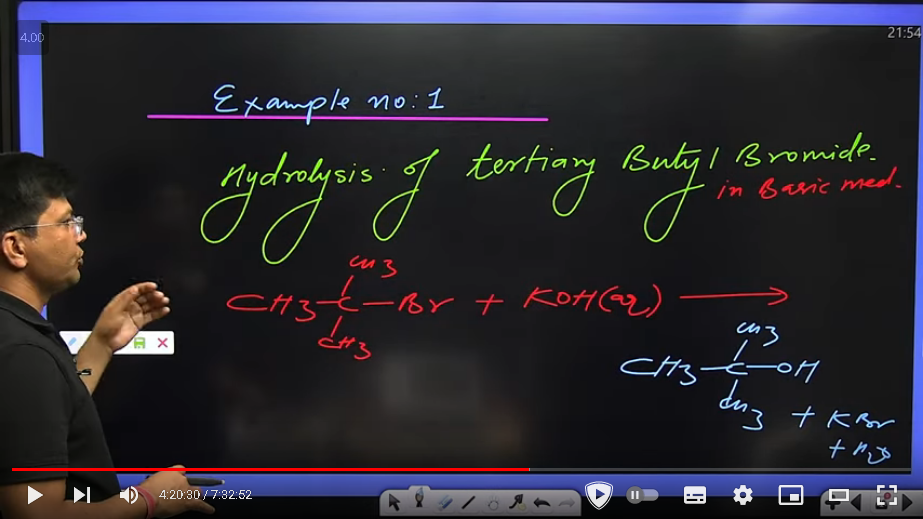 4.00
21:54
Example no:1
Hydrolysis of tertiary Butyl Bromide.
in Basic med.
CH3
CH3-C-Br + KOH(aq) →
CH3
CH3
CH3-C-OH
CH3 + KBr
+ H2O
4:20:30 / 7:32:52